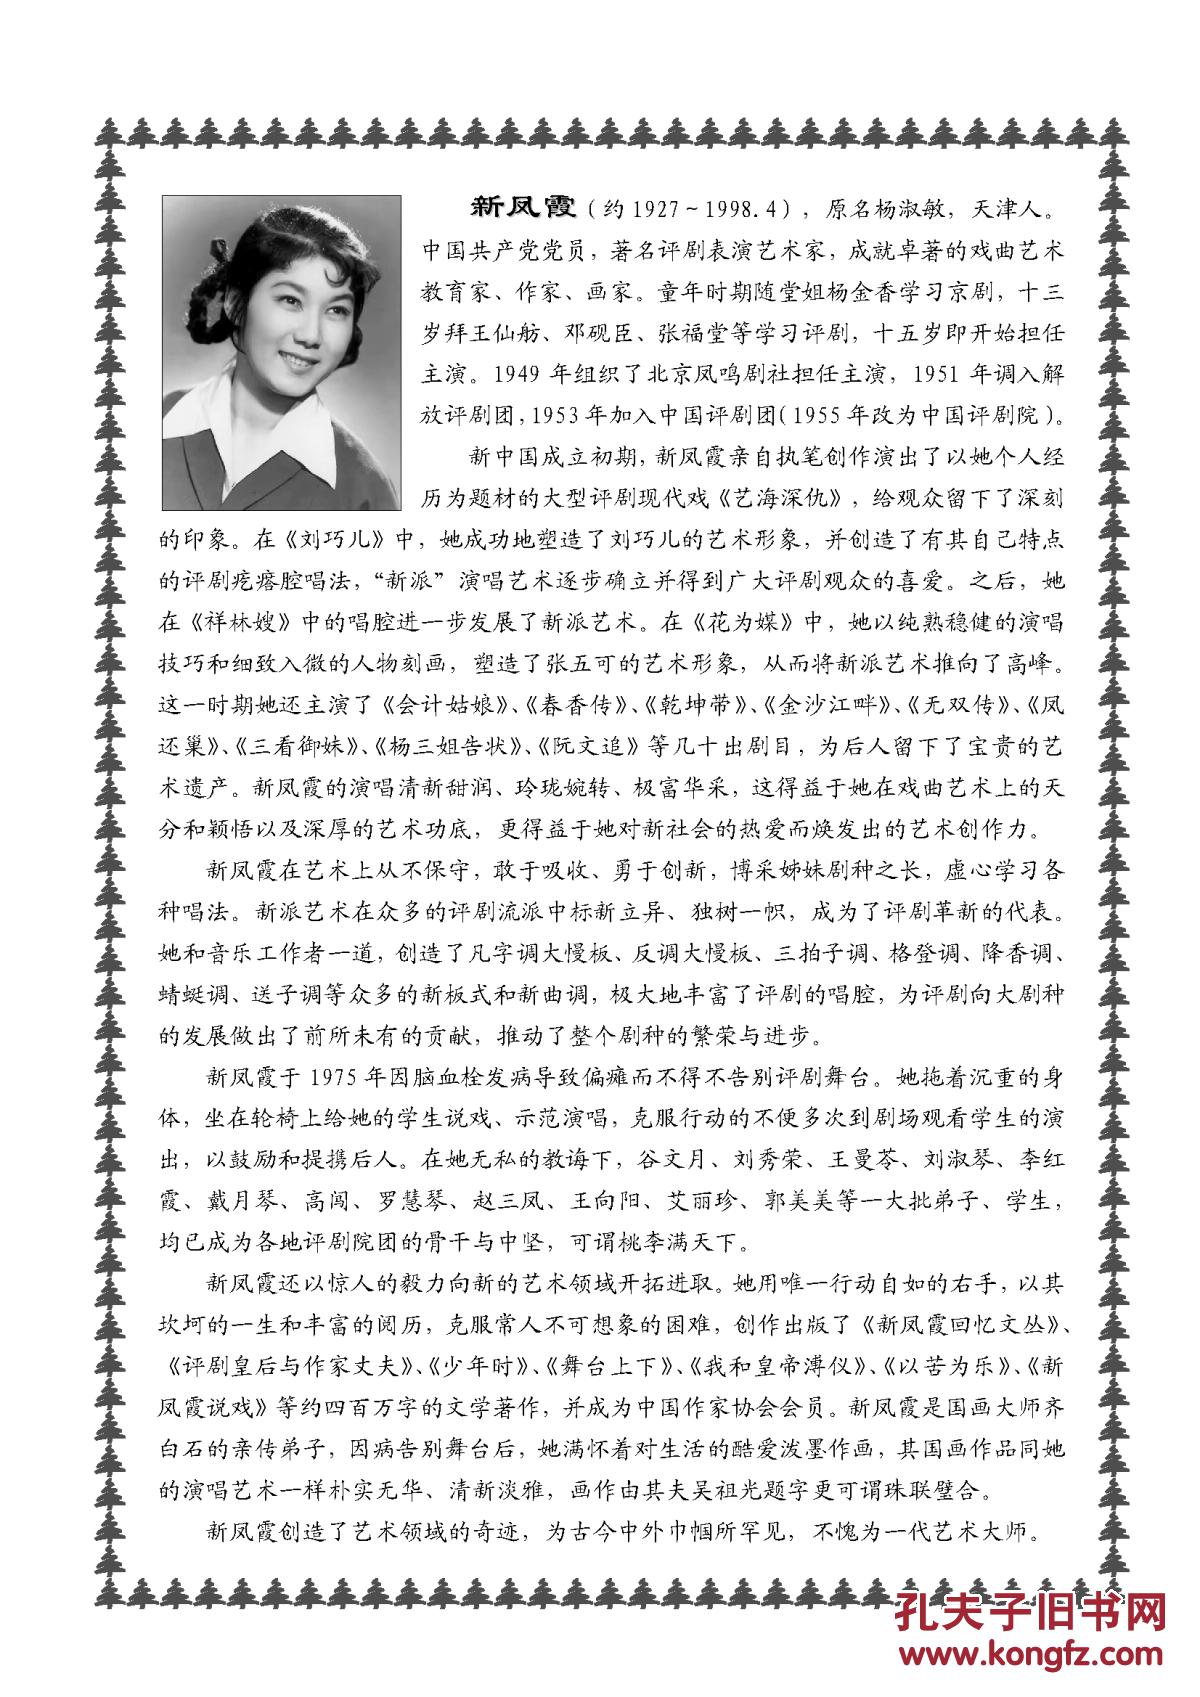 新凤霞（约1927~1998.4），原名杨淑敏，天津人。
中国共产党党员，著名评剧表演艺术家，成就卓著的戏曲艺术
教育家、作家、画家。童年时期随堂姐杨金香学习京剧，十三
岁拜王仙舫、邓砚臣、张福堂等学习评剧，十五岁即开始担任
主演。1949 年组织了北京凤鸣剧社担任主演，1951 年调入解
放评剧团，1953年加入中国评剧团（1955年改为中国评剧院）。
新中国成立初期，新凤霞亲自执笔创作演出了以她个人经
历为题材的大型评剧现代戏《艺海深仇》，给观众留下了深刻
的印象。在《刘巧儿》中，她成功地塑造了刘巧儿的艺术形象，并创造了有其自己特点
的评剧疙瘩腔唱法，“新派”演唱艺术逐步确立并得到广大评剧观众的喜爱。之后，她
在《祥林嫂》中的唱腔进一步发展了新派艺术。在《花为媒》中，她以纯熟稳健的演唱
技巧和细致入微的人物刻画，塑造了张五可的艺术形象，从而将新派艺术推向了高峰。
这一时期她还主演了《会计姑娘》、《春香传》、《乾坤带》、《金沙江畔》、《无双传》、《凤
还巢》、《三看御妹》、《杨三姐告状》、《阮文追》等几十出剧目，为后人留下了宝贵的艺
术遗产。新凤霞的演唱清新甜润、玲珑婉转、极富华采，这得益于她在戏曲艺术上的天
分和颖悟以及深厚的艺术功底，更得益于她对新社会的热爱而焕发出的艺术创作力。
新凤霞在艺术上从不保守，敢于吸收、勇于创新，博采姊妹剧种之长，虚心学习各
种唱法。新派艺术在众多的评剧流派中标新立异、独树一帜，成为了评剧革新的代表。
她和音乐工作者一道，创造了凡字调大慢板、反调大慢板、三拍子调、格登调、降香调、
蜻蜓调、送子调等众多的新板式和新曲调，极大地丰富了评剧的唱腔，为评剧向大剧种
的发展做出了前所未有的贡献，推动了整个剧种的繁荣与进步。
新凤霞于 1975 年因脑血栓发病导致偏瘫而不得不告别评剧舞台。她拖着沉重的身
体，坐在轮椅上给她的学生说戏、示范演唱，克服行动的不便多次到剧场观看学生的演
出，以鼓励和提携后人。在她无私的教诲下，谷文月、刘秀荣、王曼苓、刘淑琴、李红
霞、戴月琴、高闯、罗慧琴、赵三凤、王向阳、艾丽珍、郭美美等一大批弟子、学生，
均已成为各地评剧院团的骨干与中坚，可谓桃李满天下。
新凤霞还以惊人的毅力向新的艺术领域开拓进取。她用唯一行动自如的右手，以其
坎坷的一生和丰富的阅历，克服常人不可想象的困难，创作出版了《新凤霞回忆文丛》、
《评剧皇后与作家丈夫》、《少年时》、《舞台上下》、《我和皇帝溥仪》、《以苦为乐》、《新
凤霞说戏》等约四百万字的文学著作，并成为中国作家协会会员。新凤霞是国画大师齐
白石的亲传弟子，因病告别舞台后，她满怀着对生活的酷爱泼墨作画，其国画作品同她
的演唱艺术一样朴实无华、清新淡雅，画作由其夫吴祖光题字更可谓珠联璧合。
新凤霞创造了艺术领域的奇迹，为古今中外巾帼所罕见，不愧为一代艺术大师。
孔夫子旧书网
www.kongfz.com